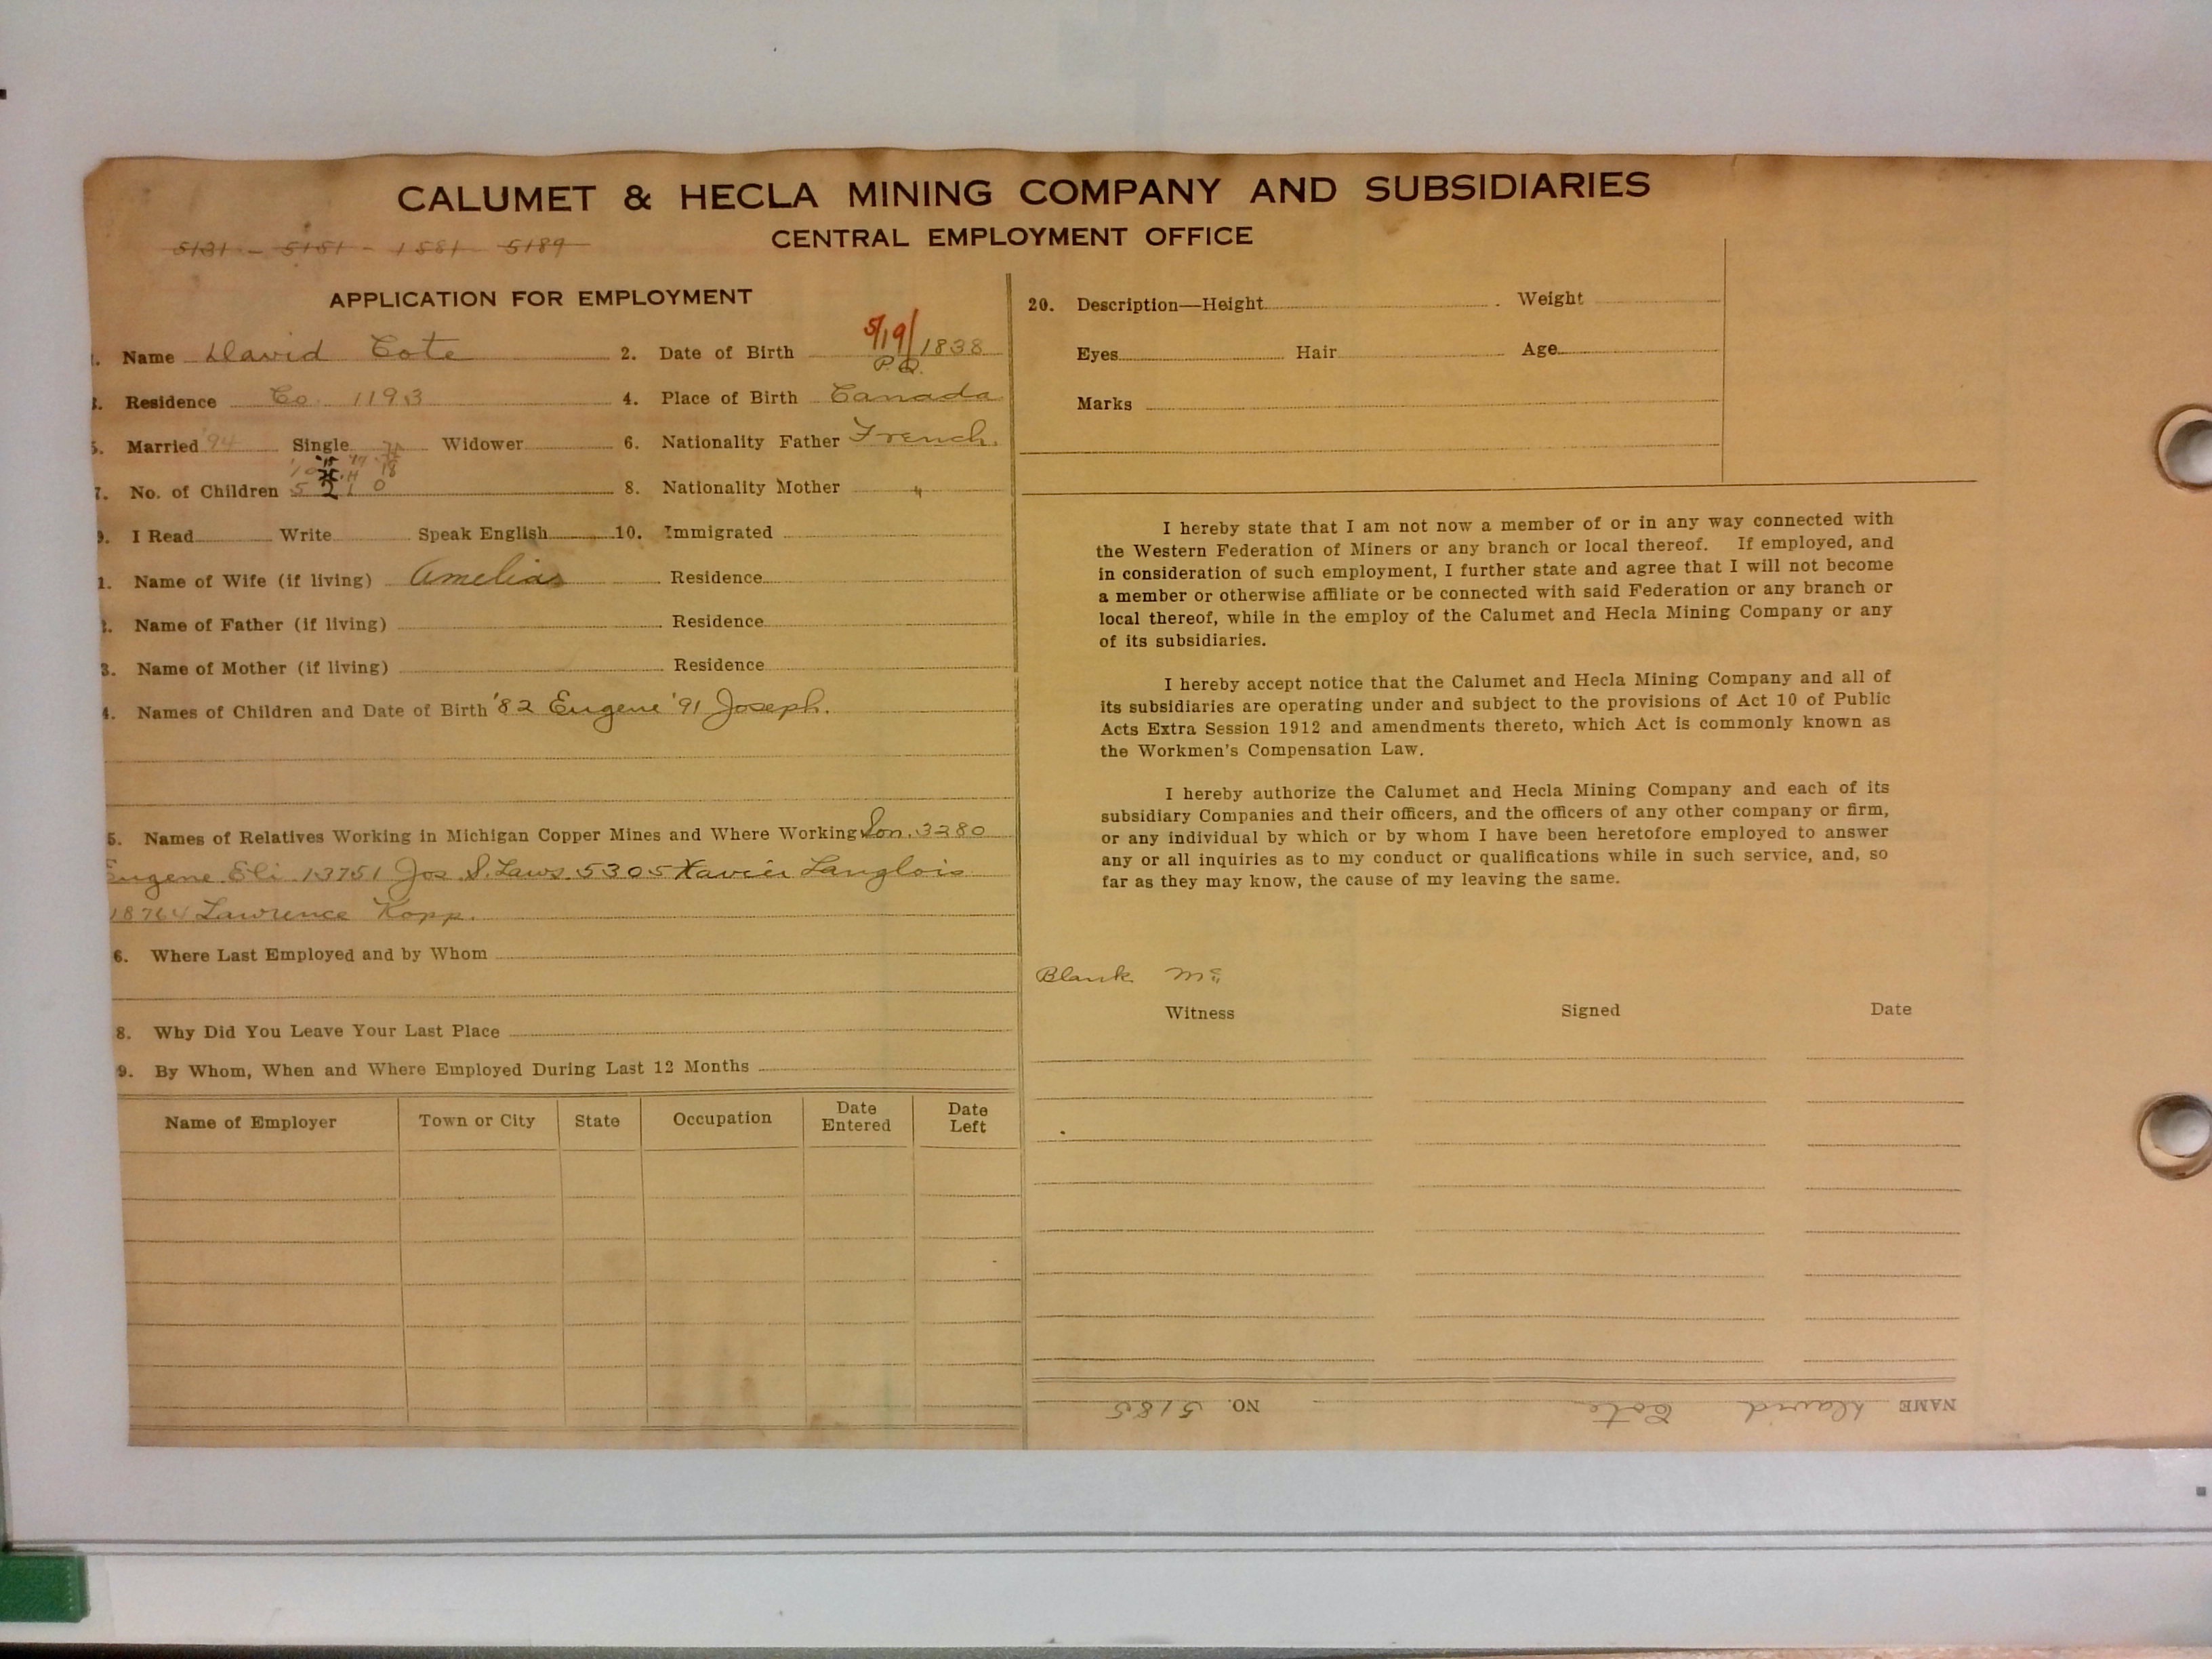 CALUMET & HECLA MINING COMPANY AND SUBSIDIARIES
CENTRAL EMPLOYMENT OFFICE
5131 - 5151 - 1581 5189
APPLICATION FOR EMPLOYMENT
. Name David Cote 2. Date of Birth 5/19/1838
P.Q.
. Residence Co. 1193 4. Place of Birth Canada
5. Married '94 Single Widower 6. Nationality Father French.
'15 '17 18
7. No. of Children 5 2 1 0 8. Nationality Mother "
9. I Read Write Speak English 10. Immigrated
1. Name of Wife (if living) Amelia Residence
2. Name of Father (if living) Residence
3. Name of Mother (if living) Residence
4. Names of Children and Date of Birth '82 Eugene '91 Joseph.
5. Names of Relatives Working in Michigan Copper Mines and Where Working Son. 3280
Eugene Eli 13751 Jos S. Laws. 5305 Xavier Langlois
18764 Lawrence Kopp.
6. Where Last Employed and by Whom
8. Why Did You Leave Your Last Place
9. By Whom, When and Where Employed During Last 12 Months
Name of Employer Town or City State Occupation Date Entered Date Left
20. Description—Height Weight
Eyes Hair Age
Marks
I hereby state that I am not now a member of or in any way connected with
the Western Federation of Miners or any branch or local thereof. If employed, and
in consideration of such employment, I further state and agree that I will not become
a member or otherwise affiliate or be connected with said Federation or any branch or
local thereof, while in the employ of the Calumet and Hecla Mining Company or any
of its subsidiaries.
I hereby accept notice that the Calumet and Hecla Mining Company and all of
its subsidiaries are operating under and subject to the provisions of Act 10 of Public
Acts Extra Session 1912 and amendments thereto, which Act is commonly known as
the Workmen's Compensation Law.
I hereby authorize the Calumet and Hecla Mining Company and each of its
subsidiary Companies and their officers, and the officers of any other company or firm,
or any individual by which or by whom I have been heretofore employed to answer
any or all inquiries as to my conduct or qualifications while in such service, and, so
far as they may know, the cause of my leaving the same.
Blank
Witness Signed Date
NAME David Cote NO. 5185